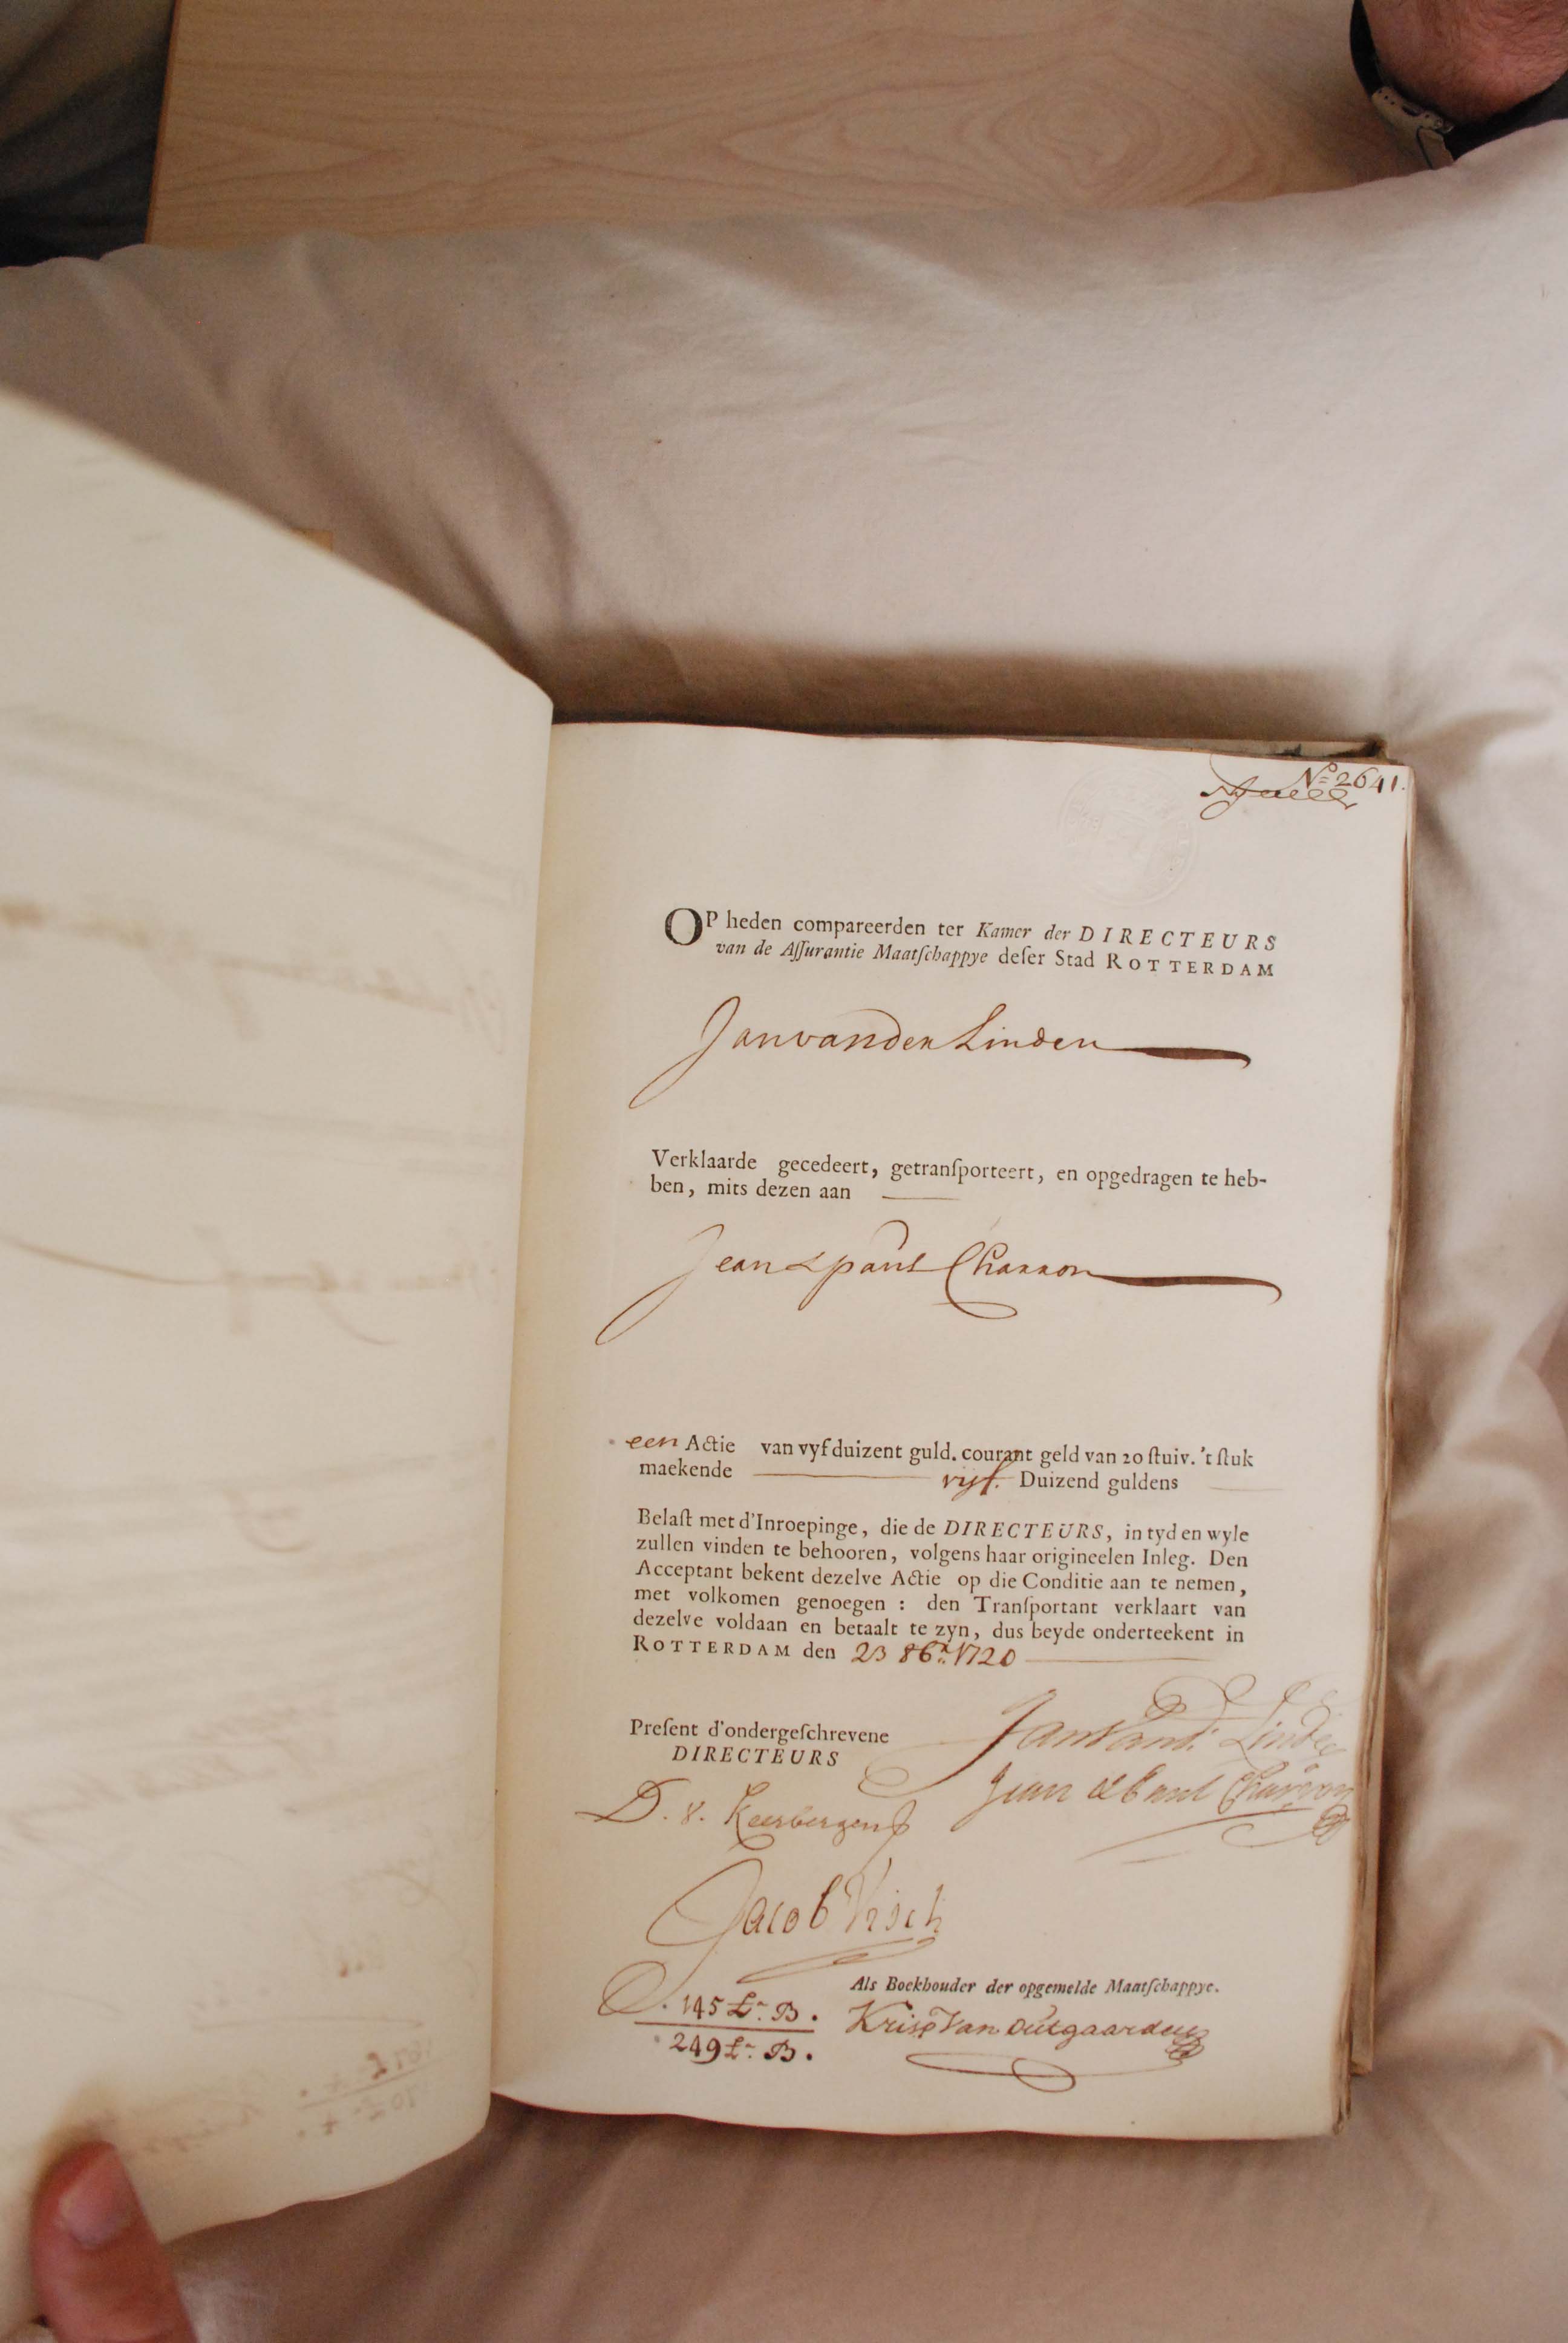 No 2641.
OP heden compareerden ter Kamer der DIRECTEURS
van de Aſſurantie Maatſchappye deſer Stad ROTTERDAM
Jan vanden Linden
Verklaarde gecedeert, getranſporteert, en opgedragen te heb-
ben, mits dezen aan
Jean & paul Charron
een Actie van vyf duizent guld. courant geld van 20 ſtuiv. 't ſtuk
maekende vyf. Duizend guldens
Belaſt met d'Inroepinge, die de DIRECTEURS, in tyd en wyle
zullen vinden te behooren, volgens haar origineelen Inleg. Den
Acceptant bekent dezelve Actie op die Conditie aan te nemen,
met volkomen genoegen : den Tranſportant verklaart van
dezelve voldaan en betaalt te zyn, dus beyde onderteekent in
ROTTERDAM den 23 8br. 1720
Preſent d'ondergeſchrevene
DIRECTEURS
Jan Vand: Linde
Jean & Paul Charron
D. v. Keerbergen
Jacob Visch
Als Boekhouder der opgemelde Maatſchappye.
145 Lr. B.
Krisp Van Outgaarden
249 Lr. B.